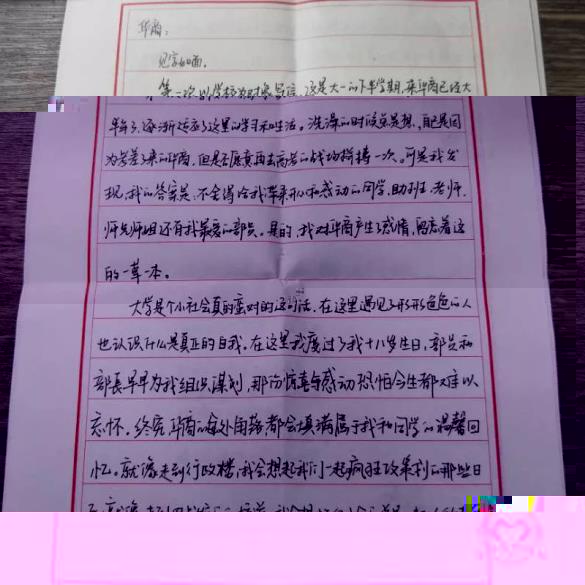 华商:
见字如面。
第一次以学校为对象写信,这是大一的下半学期,来华商已经大
半年了,逐渐适应了这里的学习和生活。洗澡的时候总是想,自己是因
为差差了来的华商,但是否愿意再去高考的战场拼搏一次。可是我发
现,我的答案是:不会 给我带来开心和感动的同学,助班,老师,
师兄师姐还有我最爱的部员。是的,我对华商产生了感情,留恋着这
的一草一本。
大学是个小社会真的蛮对的这句话,在这里遇见了形形色色的人
也认识什么是真正的自我。在这里我度过了我十八岁生日,部员和
部长早早为我组织谋划,那份惊喜与感动恐怕今生都难以
忘怀。终究华商的每处角落都会填满属于我和同学的温馨回
忆。就像走到行政楼,我会想起我们一起疯狂收集利的那些日